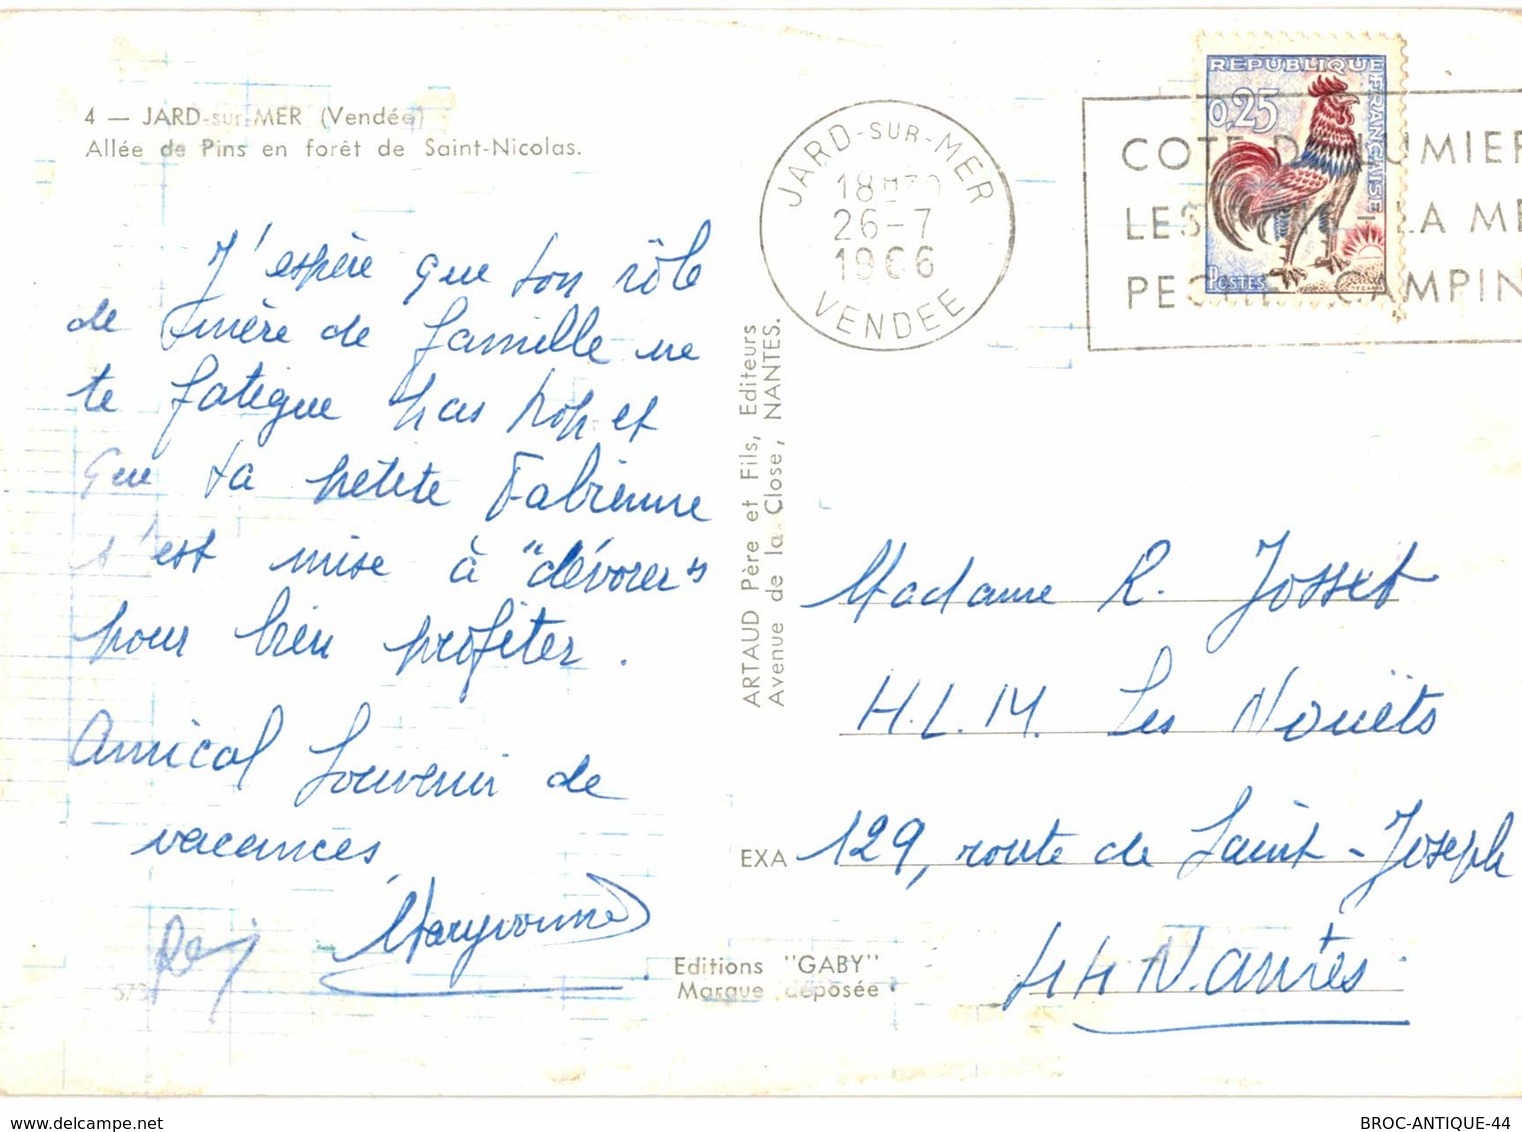 4 — JARD-sur-MER (Vendée)
Allée de Pins en forêt de Saint-Nicolas.
J'espère que ton rôle
de mère de famille ne
te fatigue pas trop et
que ta petite Fabienne
s'est mise à "dévorer"
pour bien profiter.
Amical souvenir de
vacances
Maryvonne
ARTAUD Père et Fils, Editeurs
Avenue de la Close, NANTES.
EXA
Editions "GABY"
Marque déposée
JARD-SUR-MER
26-7
1966
VENDEE
REPUBLIQUE FRANÇAISE
0,25
POSTES
LES LA
Madame R. Josset
H.L.M. Les Nouëts
129, route de Saint-Joseph
44 Nantes
delcampe.net
BROC-ANTIQUE-44